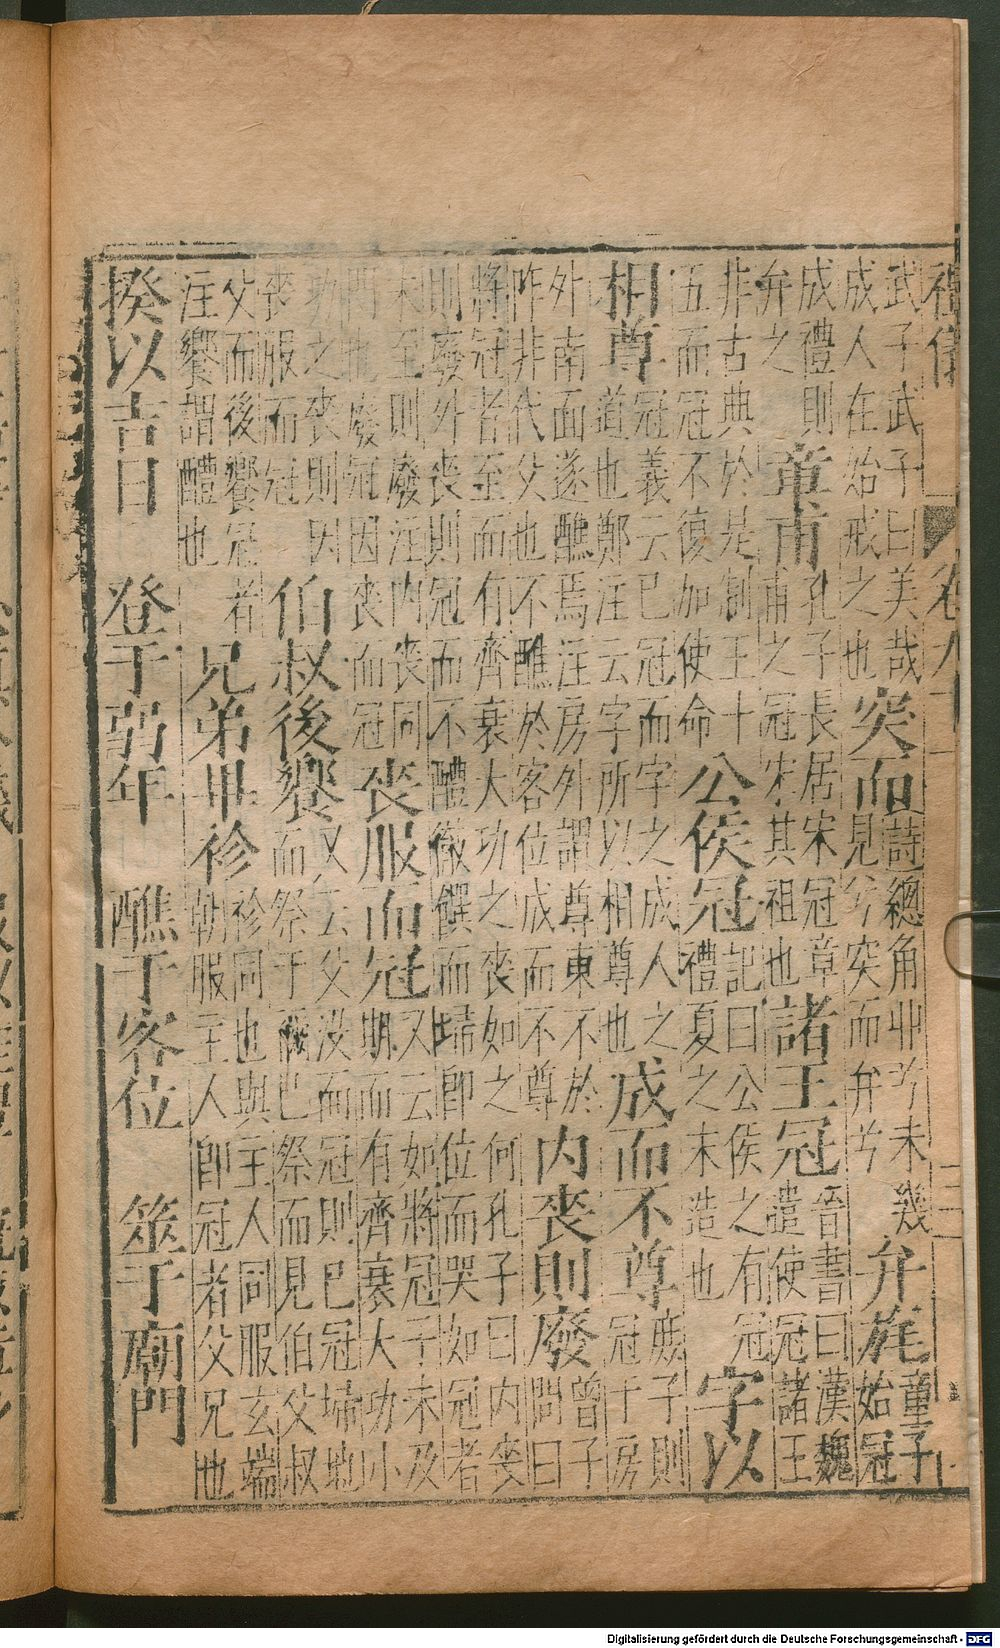 卷九
武子武子曰美哉
成人在始戒之也
突而
詩總角丱兮未幾
見兮突而弁兮
弁旄
童子
始冠
成禮則
弁之
童甫
孔子長居宋冠章
甫之冠宋其祖也
諸王冠
晉書曰漢魏
遣使冠諸王
非古典於是制王十
五而冠不復加使命
公侯冠
記曰公侯之有冠
禮夏之末造也
字以
相尊
冠義云已冠而字之成人之
道也鄭注云字所以相尊也
成而不尊
子則
冠于房
外南面遂醮焉注房外謂尊東不於
阼非代父也不醮於客位成而不尊
内喪則廢
曾子
問曰
將冠者至而有齊衰大功之喪如之何孔子曰内喪
則廢外喪則冠而不醴徹饌而埽即位而哭如冠者
未至則廢注内喪同
門廢冠因喪而冠
喪服而冠
又云如將冠子未及
期而有齊衰大功小
功之喪則因
喪服而冠
伯叔後饗
又云父没而冠則已冠埽地
而祭于禰已祭而見伯父叔
父而後饗冠者
注饗謂醴也
兄弟畢袗
袗同也與主人同服玄端
朝服主人即冠者父兄也
揆以吉日　登于弱年　醮于客位　筮于廟門
Digitalisierung gefördert durch die Deutsche Forschungsgemeinschaft - DFG